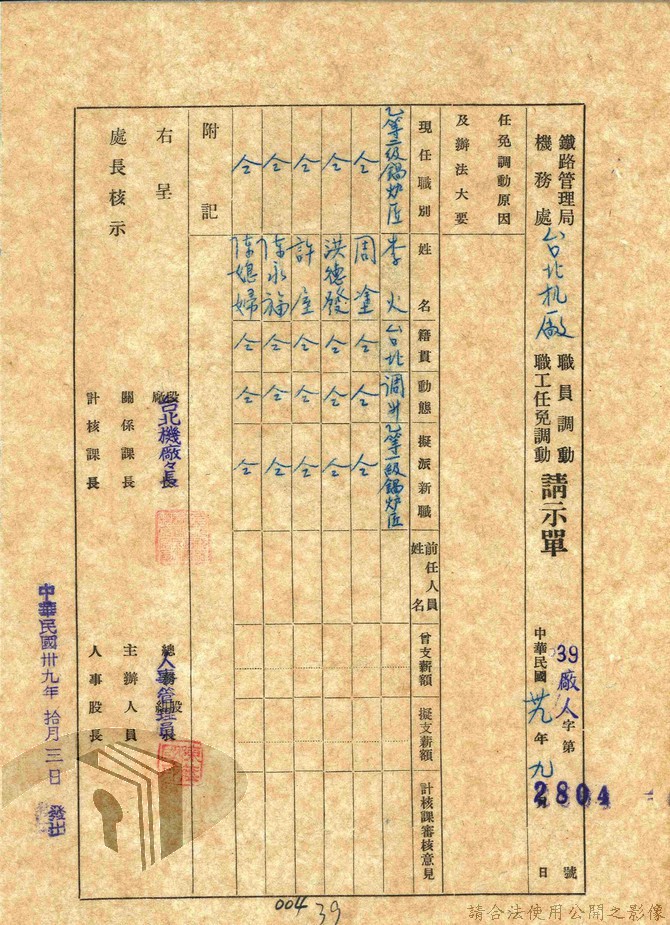 鐵路管理局
機務處
台北机廠
職員調動
職工任免調動
請示單
39廠人字第2804號
中華民國卅九年九 日
任免調動原因
及辦法大要
現任職別 姓名 籍貫 動態 擬派新職 前任人員姓名 曾支薪額 擬支薪額 計核課審核意見
乙等二級鍋炉匠 李火 台北 调升 乙等一級鍋炉匠
仝 周塗 仝 仝 仝
仝 洪德發 仝 仝 仝
仝 許 仝 仝 仝
仝 陳永福 仝 仝 仝
仝 陳媳婦 仝 仝 仝
附記
右呈
處長核示
台北機廠々長
關係課長
計核課長
人事管理員
主辦人員
人事股長
中華民國卅九年拾月三日發出
004
39
請合法使用公開之影像